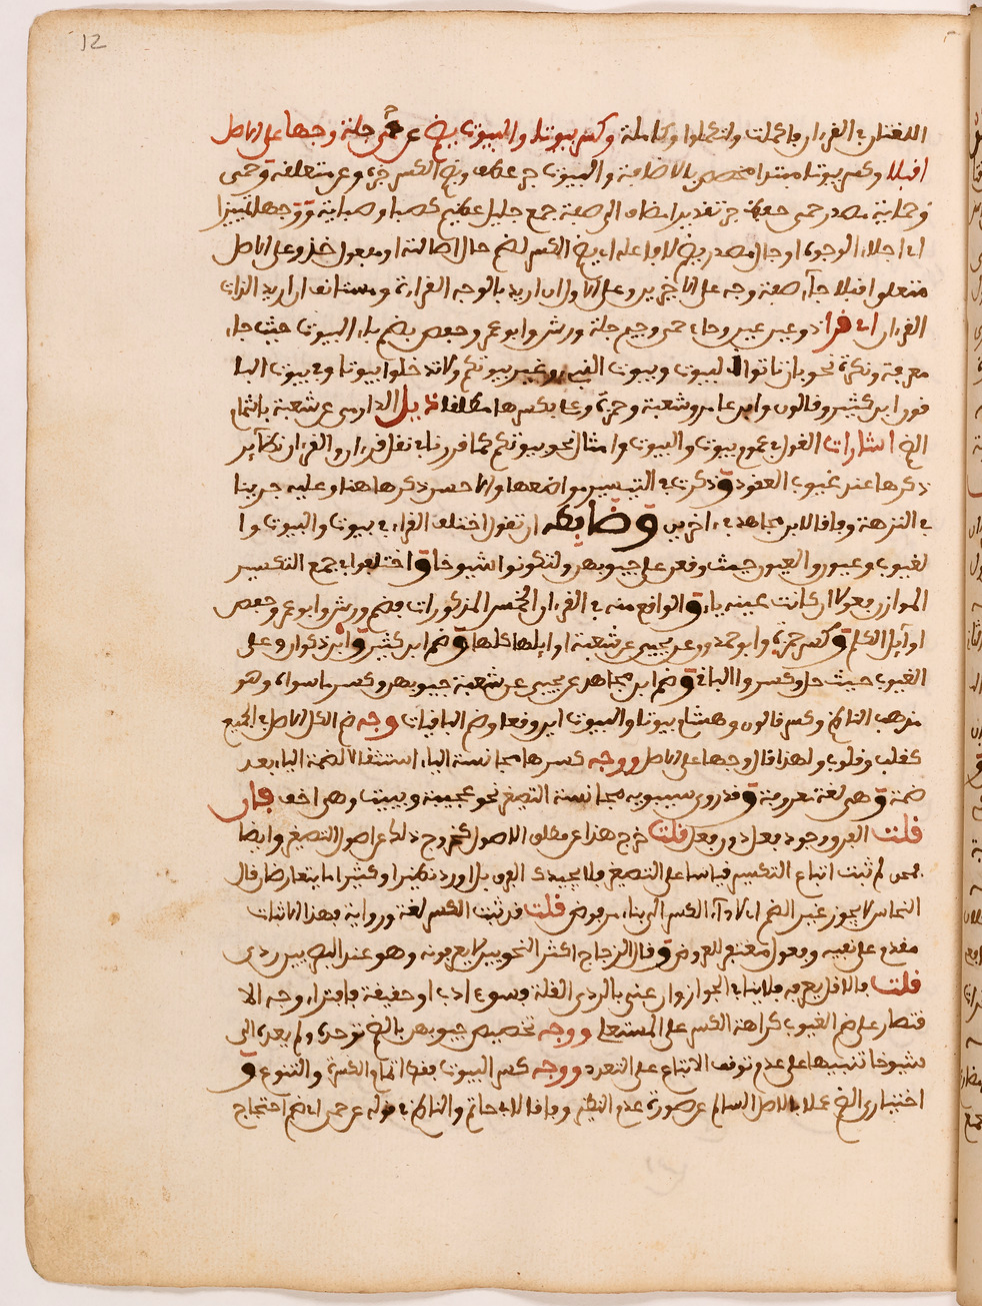 12
اللغتان في القرءان فأكملت ولتكملوا وكاملة وكسر بيوت والبيوت يضم عن حمى جلة وجها على الاصل
اقبلا وكسر بيوت مبتدا مخصص بالاضافة والبيوت جر عطف ويضم الكسر خبره وعن متعلقه وحمى
وحماية مصدر حمى حفظ جر تقديرا مضاف الى صفة جمع جليل عظيم كصبا وصباية ووجها تمييز
اى اجلاء الوجوه او حال مصدر يضم
متعلق اقبلا جاء صفة وجه على الاخيرين وعلى الاول ان اريد بالوجه القراءة ومستانف ان اريد الذات
القران اى قرا ذو عين عن وحاء حمى وجيم جلة ورش وابو عمرو وحفص بضم باء البيوت حيث جاء
معرفة ونكرة نحو بان تاتوا البيوت وبيوت النبى غير بيوتكم ولا تدخلوا بيوتا وفى بيوت الباء
فورا ابن كثير وقالون وابن عامر وشعبة وحمزة وعلى بكسرها مطلقا ذيل الدارمى عن شعبة باشمام
الضم اشارات القول في عموم بيوت والبيوت وامثال نحو بيوتكم كما قررنا في نقل قران والقران نظاير
ذكرها عند غيوب العقود وذكرت في التيسير مواضعها والاحسن ذكرها هنا وعليه جرينا
في النزهة وفاقا لابن مجاهد في اخرين وضابطه ان تقول اختلف القراء في بيوت والبيوت وا
لغيوب وعيون والعيون حيث وقعن على جيوبهن ولتكونوا شيوخا واختلفوا في جمع التكسير
الموازن فعولا ان كانت عينه ياء والواقع منه في القران الخمس المذكورات فضم ورش وابو عمرو وحفص
اوايل الكلم وكسر حمزة وابو حمدون عن يحيى عن شعبة اوايلها كلها وضم ابن كثير وابن ذكوان وعلى
الغيوب حيث حل وكسروا الباقى وضم ابن مجاهد عن يحيى عن شعبة جيوبهن وكسر ما سواه وهو
مذهب الناظم وكسر قالون وهشام بيوتا والبيوت اين وقعا وضم الباقيات وجه ضم الكل الاصل في الجمع
كقلب وقلوب ولهذا قال وجها على الاصل ووجه كسرها مجانسة الياء استثقالا لضمة الياء بعد
ضمة وهى لغة معروفة وقد روى سيبويه مجانسة التصغير نحو عيينة وبييت وهى اخف فان
قلت الفرق وجود فعيل دون فعل قلت خرج هذا عن مطلق الاصول كخروج ذلك عن اصول التصغير وايضا
لم نثبت اتباع التكسير قياسا على التصغير فلا يجيد الفرق بل اورد نظيرا وكثيرا ما يتعارضا قال
النحاس لا يجوز غير الضم قلت قد ثبت الكسر لغة ورواية فهذا الاثبات
مقدم على نفيه وفعول مغتفر العروض وقال الزجاج اكثر النحويين لا يعرفونه وهو عند البصريين ردى
قلت فالاقل يعرفه فلاينا في الجواز وان عنى بالردى القلة فسوغ ادب او حقيقة فافتراء وجه الا
قتصار على ضم الغيوب كراهة الكسر على المستعلى ووجه تخصيص جيوبهن بالضم توحده ولم يعده الى
شيوخا تنبيها على عدم توقف الاتباع على التعدد ووجه كسر البيوت فقط اتمام الكثرة والتنوع و
اختيارى الضم عملا بالاصل السالم عن صورة عدم النظير وفاقا لابى حاتم والناظم في قوله عن حمى اى ضم احتجاج